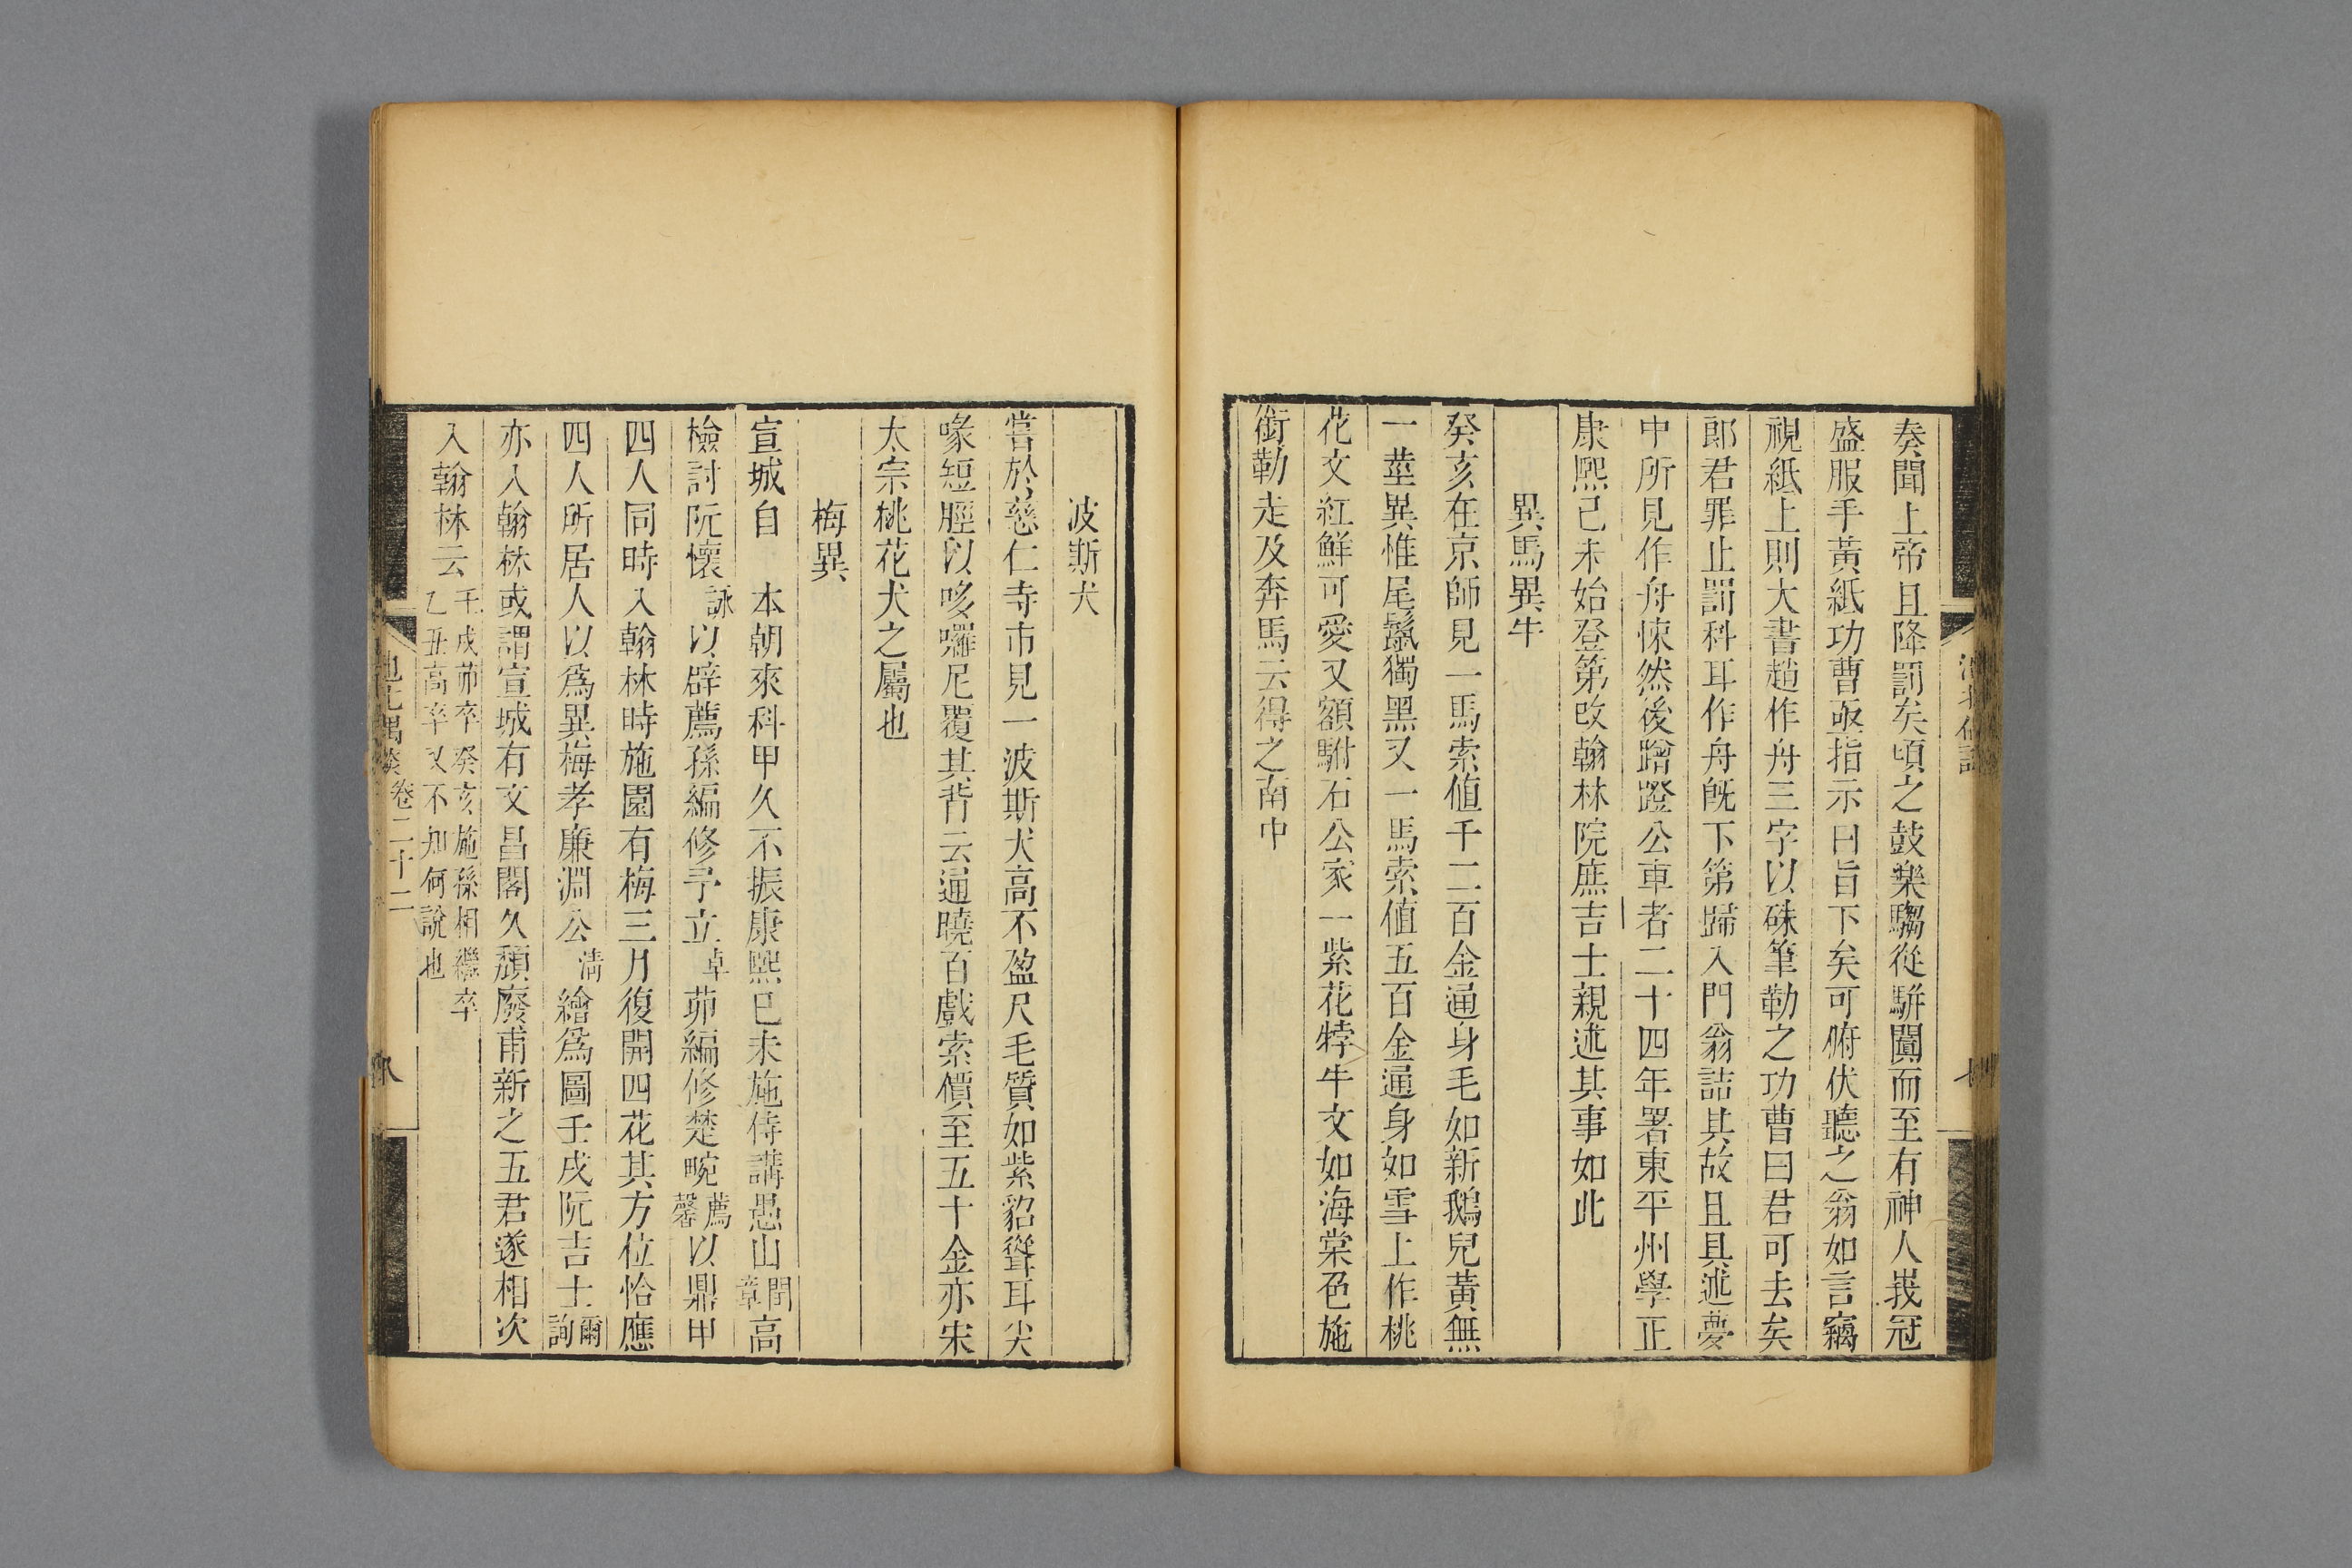 奏聞上帝且降罰矣頃之鼓樂騶從駢闐而至有神人峩冠
盛服手黃紙功曹亟指示曰旨下矣可俯伏聽之翁如言竊
視紙上則大書趙作舟三字以硃筆勒之功曹曰君可去矣
郎君罪止罰科耳作舟旣下第歸入門翁詰其故且具述夢
中所見作舟悚然後蹭蹬公車者二十四年署東平州學正
康熙己未始登第改翰林院庶吉士親述其事如此
異馬異牛
癸亥在京師見一馬索値千二百金通身毛如新鵝兒黃無
一莖異惟尾鬣獨黑又一馬索值五百金通身如雪上作桃
花文紅鮮可愛又額駙石公家一紫花牸牛文如海棠色施
銜勒走及奔馬云得之南中
波斯犬
嘗於慈仁寺市見一波斯犬高不盈尺毛質如紫貂聳耳尖
喙短脛以哆囉尼覆其背云通曉百戲索價至五十金亦宋
太宗桃花犬之屬也
梅異
宣城自 本朝來科甲久不振康熙己未施侍講愚山閏章高
檢討阮懷詠以辟薦孫編修予立卓茆編修楚畹薦馨以鼎甲
四人同時入翰林時施園有梅三月復開四花其方位恰應
四人所居人以爲異梅孝廉淵公淸繪爲圖壬戌阮吉士爾詢
亦入翰林或謂宣城有文昌閣久頹廢甫新之五君遂相次
入翰林云壬戌茆卒癸亥施孫相繼卒乙丑高卒又不知何說也
池北偶談
卷二十二
八